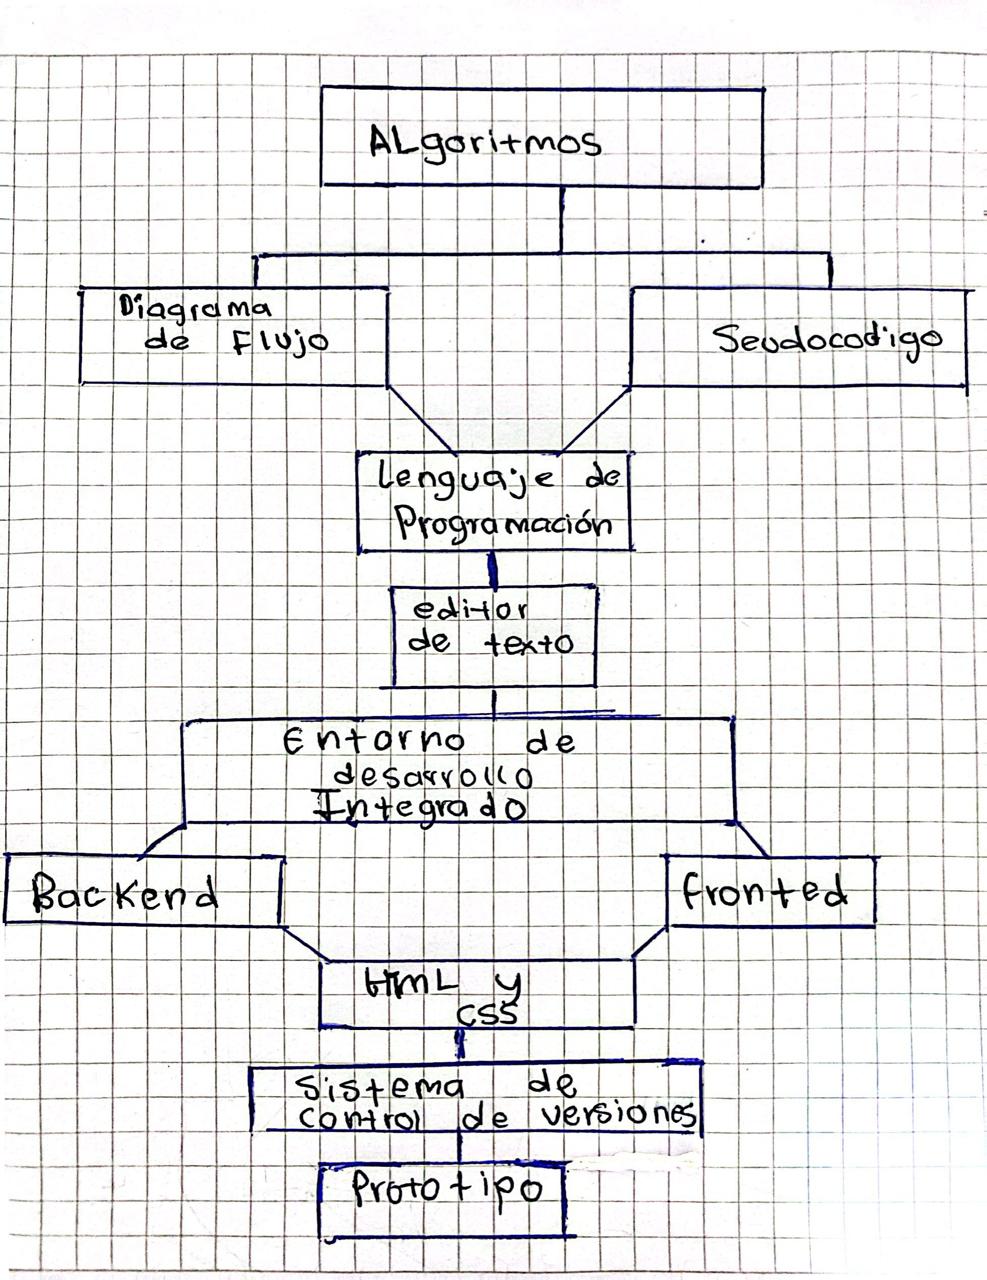 ALgoritmos
Diagrama
de Flujo
Seudocodigo
Lenguaje de
Programación
editor
de texto
Entorno de
desarrollo
Integrado
Backend
fronted
HtmL y
CSS
Sistema de
control de versiones
Prototipo